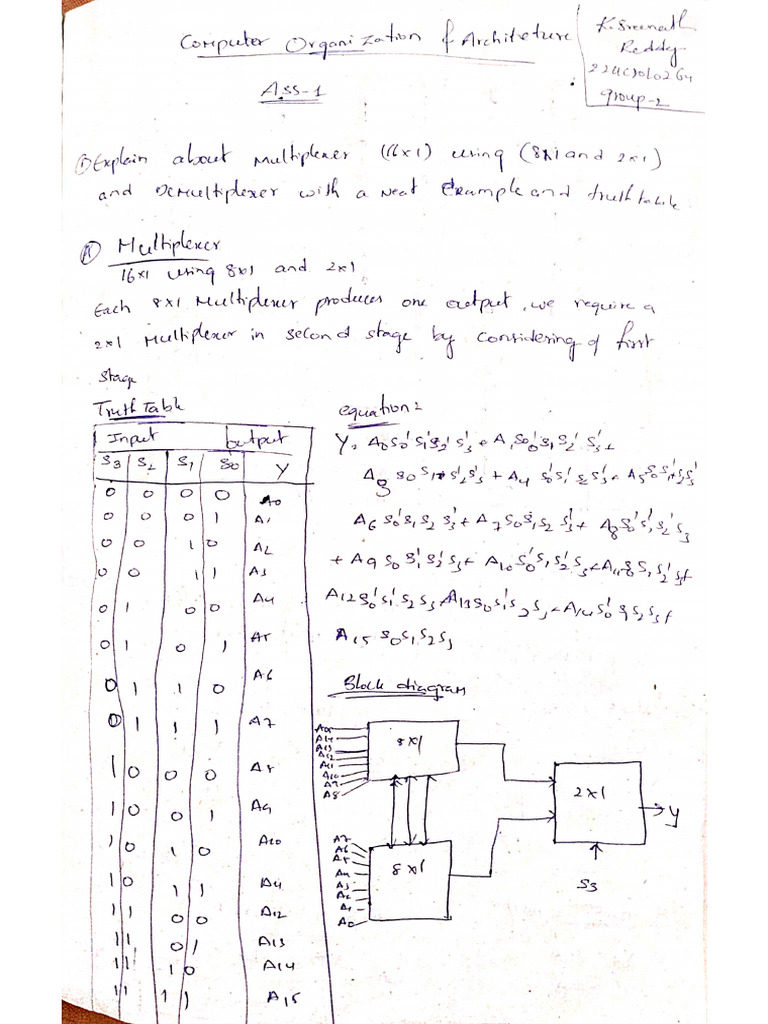 Computer Organization & Architeture
K.Sreenath
Reddy
Group-2
Ass-1
① Explain about Multiplexer (16x1) using (8x1 and 2x1)
and DeMultiplexer with a neat Example and truth table
Ⓐ Multiplexer
16x1 using 8x1 and 2x1
Each 8x1 Multiplexer produces one output, we require a
2x1 Multiplexer in second stage by considering of first
stage
Truth Table
Input output
S3 S2 S1 S0 Y
0 0 0 0 A0
0 0 0 1 A1
0 0 1 0 A2
0 0 1 1 A3
0 1 0 0 A4
0 1 0 1 A5
0 1 1 0 A6
0 1 1 1 A7
1 0 0 0 A8
1 0 0 1 A9
1 0 1 0 A10
1 0 1 1 A11
1 1 0 0 A12
1 1 0 1 A13
1 1 1 0 A14
1 1 1 1 A15
equation:
Y= A0 S0' S1' S2' S3' + A1 S0' S1 S2' S3' +
A6 S0' S1 S2 S3' + A7 S0 S1 S2 S3' + A8 S0' S1' S2' S3
+ A9 S0 S1' S2' S3 + A10 S0' S1 S2' S3 + A11 S S1 S2' S3 +
A12 S0' S1' S2 S3 A13 S0 S1' S2 S3 + A14 S0' S1 S2 S3 +
A15 S0 S1 S2 S3
Block diagram
A14
A13
A12
A11
A10
A9
A8
8x1
2x1
Y
S3
A7
A6
A5
A4
A3
A2
A1
A0
8x1